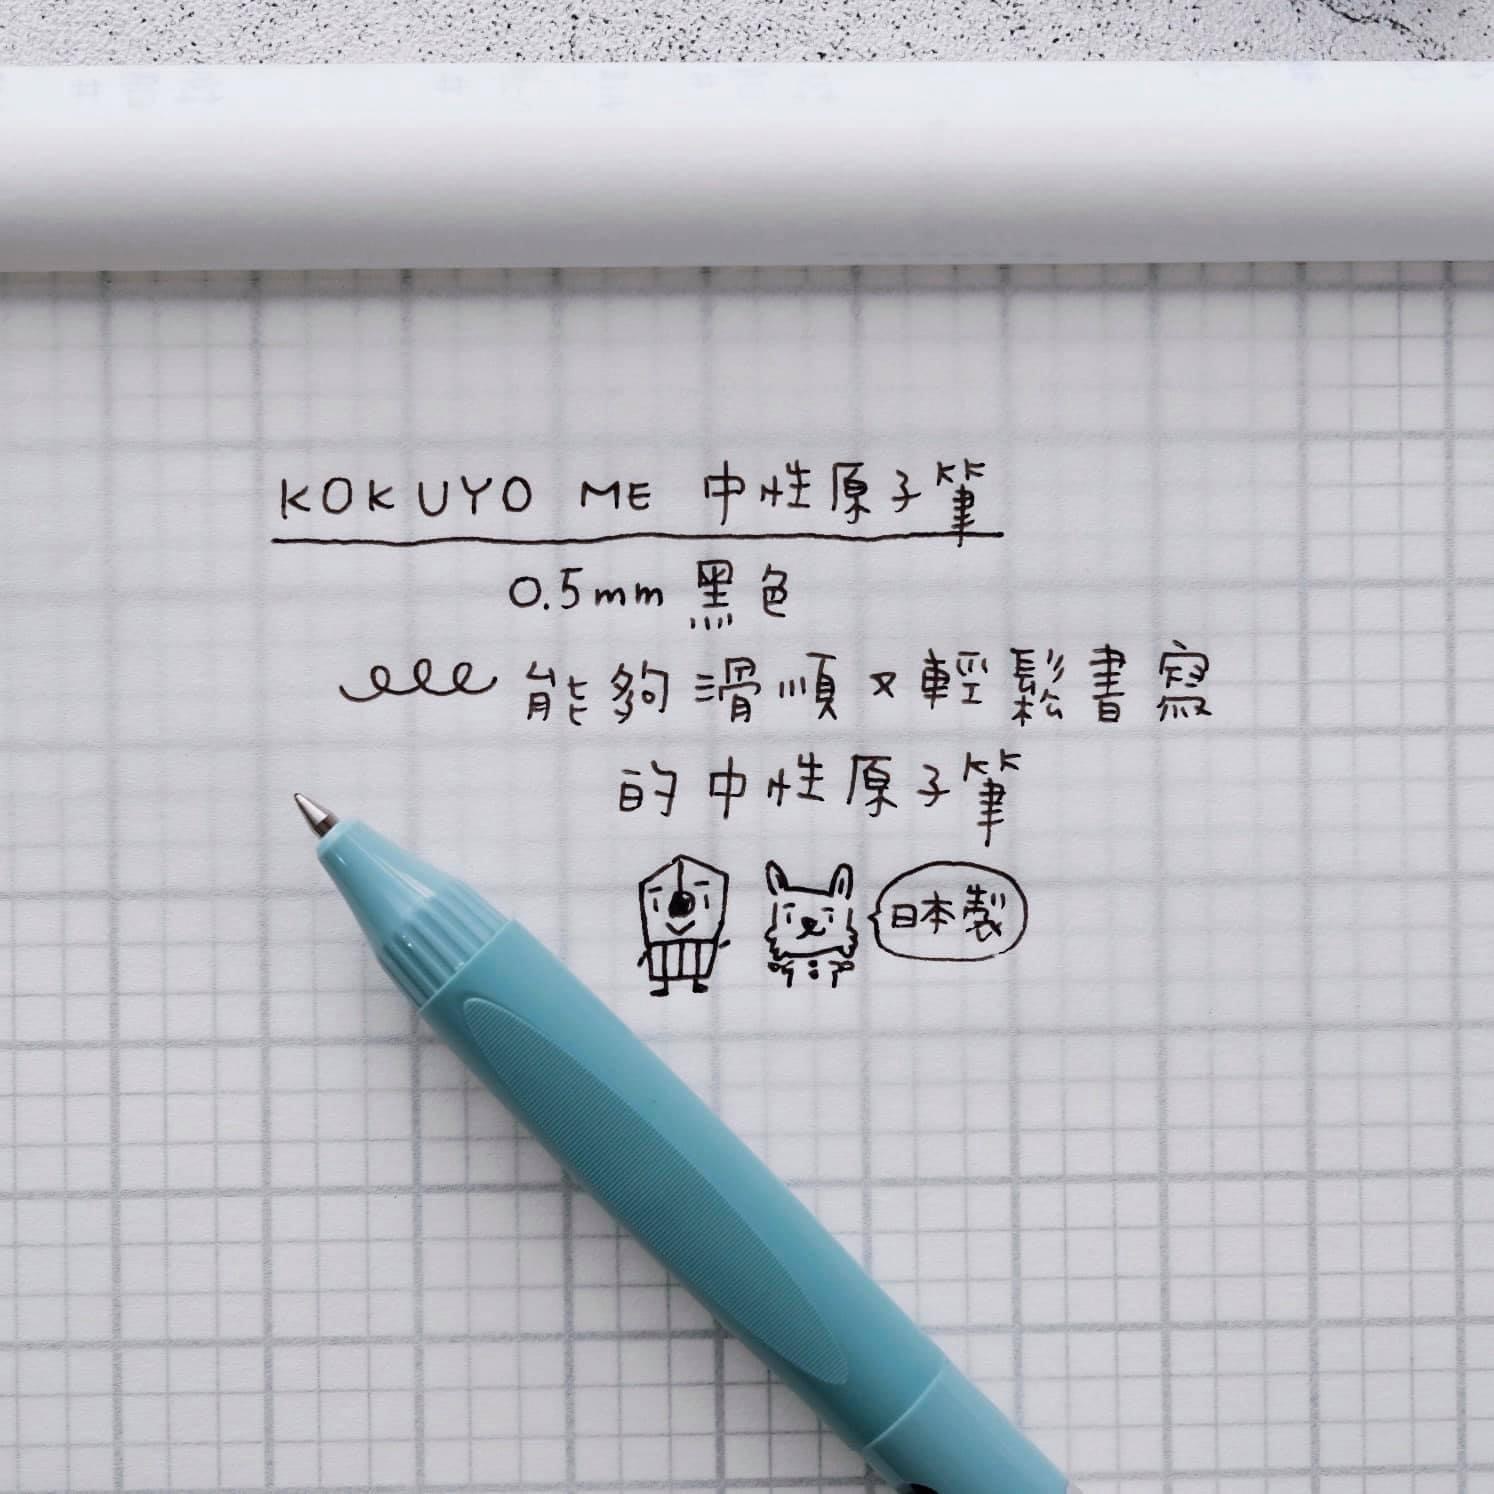 KOKUYO ME 中性原子筆
0.5mm 黑色
能夠滑順又輕鬆書寫
的中性原子筆
日本製